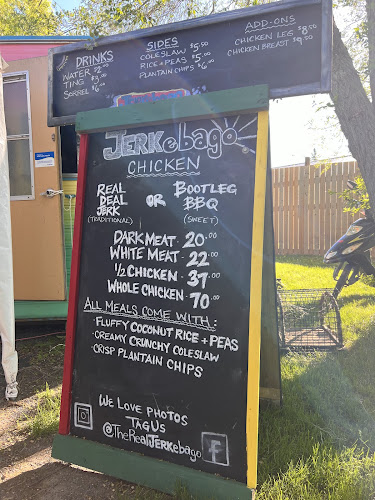 DRINKS
WATER $2.00
TING $3.00
SORREL $6
SIDES
COLESLAW $5.50
RICE + PEAS $5.50
PLANTAIN CHIPS $6.00
ADD-ONS
CHICKEN LEG $8.50
CHICKEN BREAST $9.50
JERKebago
CHICKEN
REAL DEAL JERK (TRADITIONAL)
OR
BOOTLEG BBQ (SWEET)
DARK MEAT · 20.00
WHITE MEAT · 22.00
1/2 CHICKEN · 37.00
WHOLE CHICKEN · 70.00
ALL MEALS COME WITH:
· FLUFFY COCONUT RICE + PEAS
· CREAMY CRUNCHY COLESLAW
· CRISP PLANTAIN CHIPS
WE LOVE PHOTOS
TAG US
@THEREALJERKebago
f